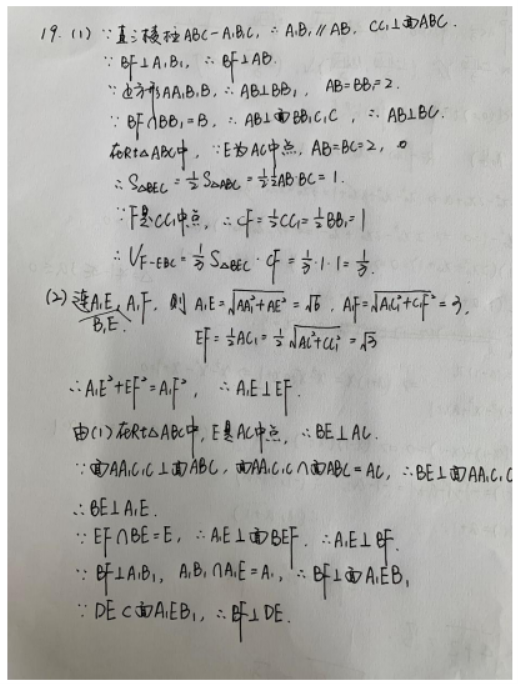 19. (1) ∵直三棱柱ABC-A₁B₁C₁ ∴A₁B₁∥AB. CC₁⊥面ABC.
∵BF⊥A₁B₁, ∴BF⊥AB.
∵正方形AA₁B₁B, ∴AB⊥BB₁, AB=BB₁=2.
∵BF∩BB₁=B, ∴AB⊥面BB₁C₁C, ∴AB⊥BC.
在Rt△ABC中, ∵E为AC中点, AB=BC=2,
∴S△BEC=½S△ABC=½·½AB·BC=1.
∵F是CC₁中点, ∴CF=½CC₁=½BB₁=1
∴V_{F-EBC}=⅓S△BEC·CF=⅓·1·1=⅓.
(2) 连A₁E, A₁F, 则A₁E=√(AA₁²+AE²)=√6, A₁F=√(A₁C₁²+C₁F²)=3,
B₁E.
EF=½AC₁=½√(AC²+CC₁²)=√3
∴A₁E²+EF²=A₁F², ∴A₁E⊥EF.
由(1)在Rt△ABC中, E是AC中点, ∴BE⊥AC.
∵面AA₁C₁C⊥面ABC, 面AA₁C₁C∩面ABC=AC, ∴BE⊥面AA₁C₁C
∴BE⊥A₁E.
∵EF∩BE=E, ∴A₁E⊥面BEF. ∴A₁E⊥BF.
∵BF⊥A₁B₁, A₁B₁∩A₁E=A₁, ∴BF⊥面A₁EB₁
∵DE⊂面A₁EB₁, ∴BF⊥DE.